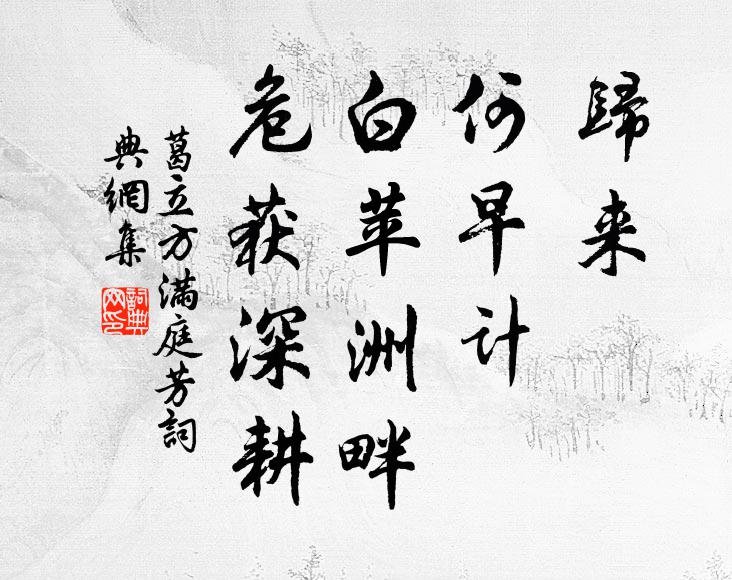 歸来
何早计
白苹洲畔
危获深耕
葛立方滿庭芳詞
典網集
詞典网印